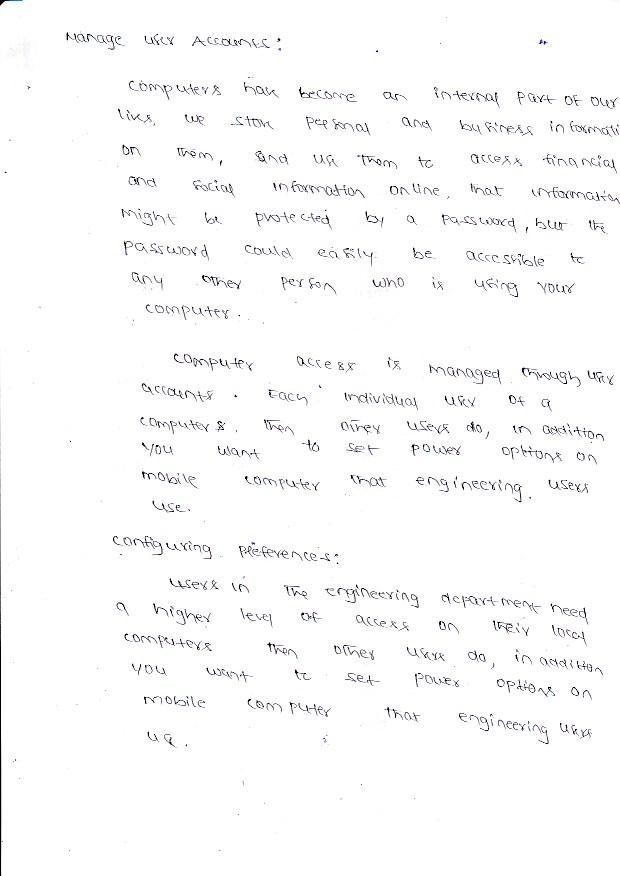 Manage User Accounts:
Computers have become an internal part of our
lives, we store personal and business informati
on them, and use them to access financial
and social information online, that information
might be protected by a password, but the
password could easily be accessible to
any other person who is using your
computer.
computer access is managed through user
accounts. Each individual user of a
computers. then other users do, in addition
you want to set power options on
mobile computer that engineering users
use.
configuring preferences:
users in the engineering department need
a higher level of access on their local
computers then other users do, in addition
you want to set power options on
mobile computer that engineering users